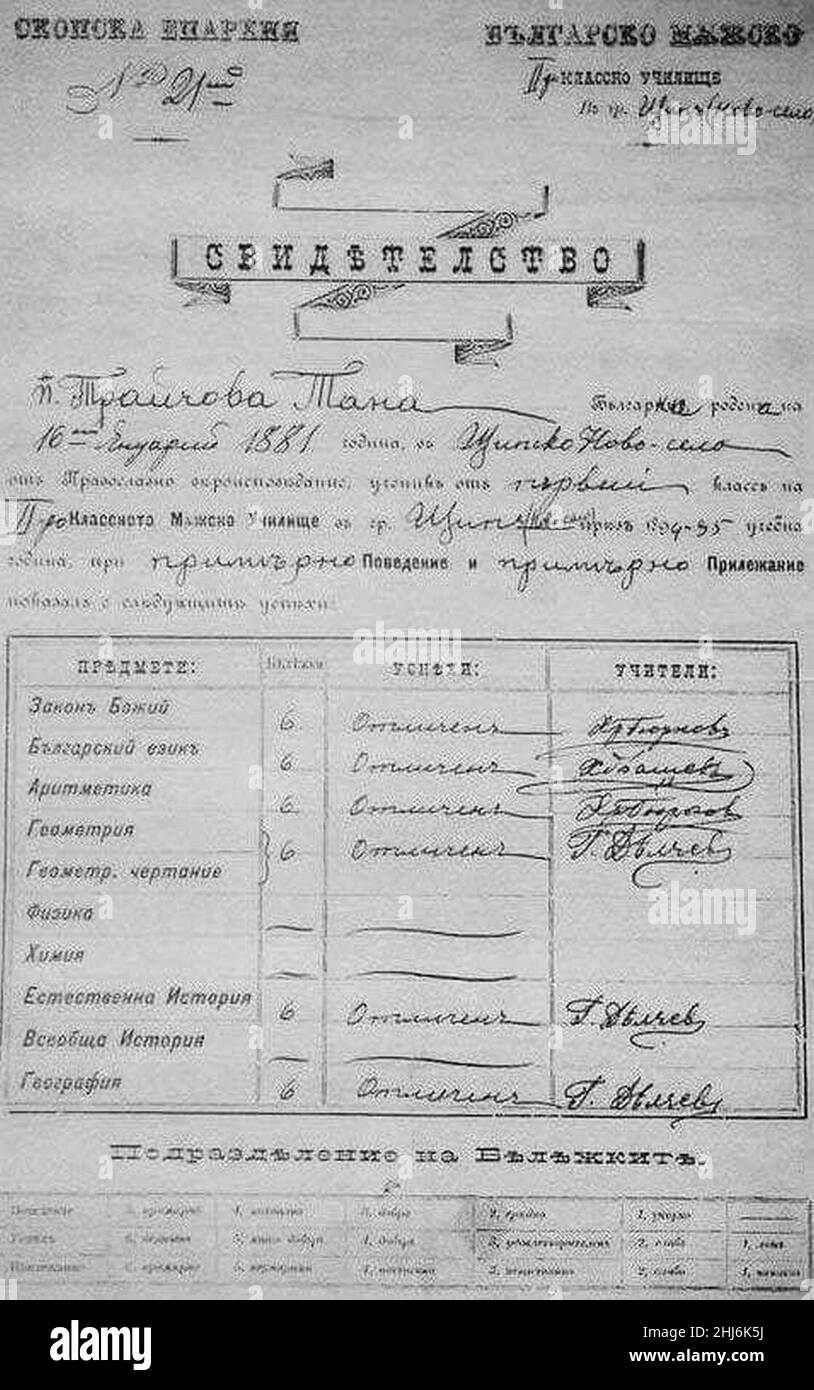 СКОПСКА ЕПАРХИЯ
БЪЛГАРСКО МѪЖСКО
№ 21
КЛАССНО УЧИЛИЩЕ
Въ гр. Щипъ Ново-село
СВИДѢТЕЛСТВО
п. Трайчова Тана Българка родена на
16 Януарий 1881 година, въ Щипско Ново-село
отъ Православно вѣроисповѣдание, ученикъ отъ първий классъ на
Класснoто Мѫжско Училище въ гр. Щипъ презъ 1894-95 учебна
година, при примѣрно Поведение и примѣрно Прилежание
показалъ с слѣдующитѣ успѣхи:
ПРѢДМЕТИ: Бѣлѣжки УСПѢХИ: УЧИТЕЛИ:
Законъ Божий 6 Отличенъ
Българский езикъ 6 Отличенъ
Аритметика 6 Отличенъ
Геометрия 6 Отличенъ Г. Дѣлчев
Геометр. чертание
Физика
Химия
Естественна История 6 Отличенъ Г. Дѣлчев
Всеобща История
География 6 Отличенъ Г. Дѣлчев
Подраздѣление на Бѣлѣжкитѣ.
Поведение 5, примѣрно 3, добро 1, укорно
Успѣхъ 6, отличенъ 5, много добъръ 4, добъръ 3, удовлетворителенъ 2, слабъ 1, лошъ
Прилежание 2, слабо
alamy
Image ID: 2HJ6K5J
www.alamy.com